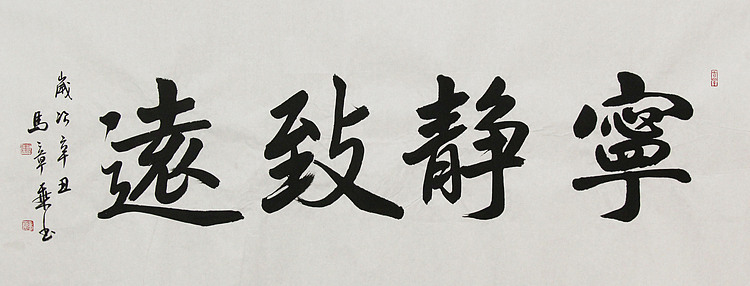 寧靜致遠
歲次辛丑
馬章乘书